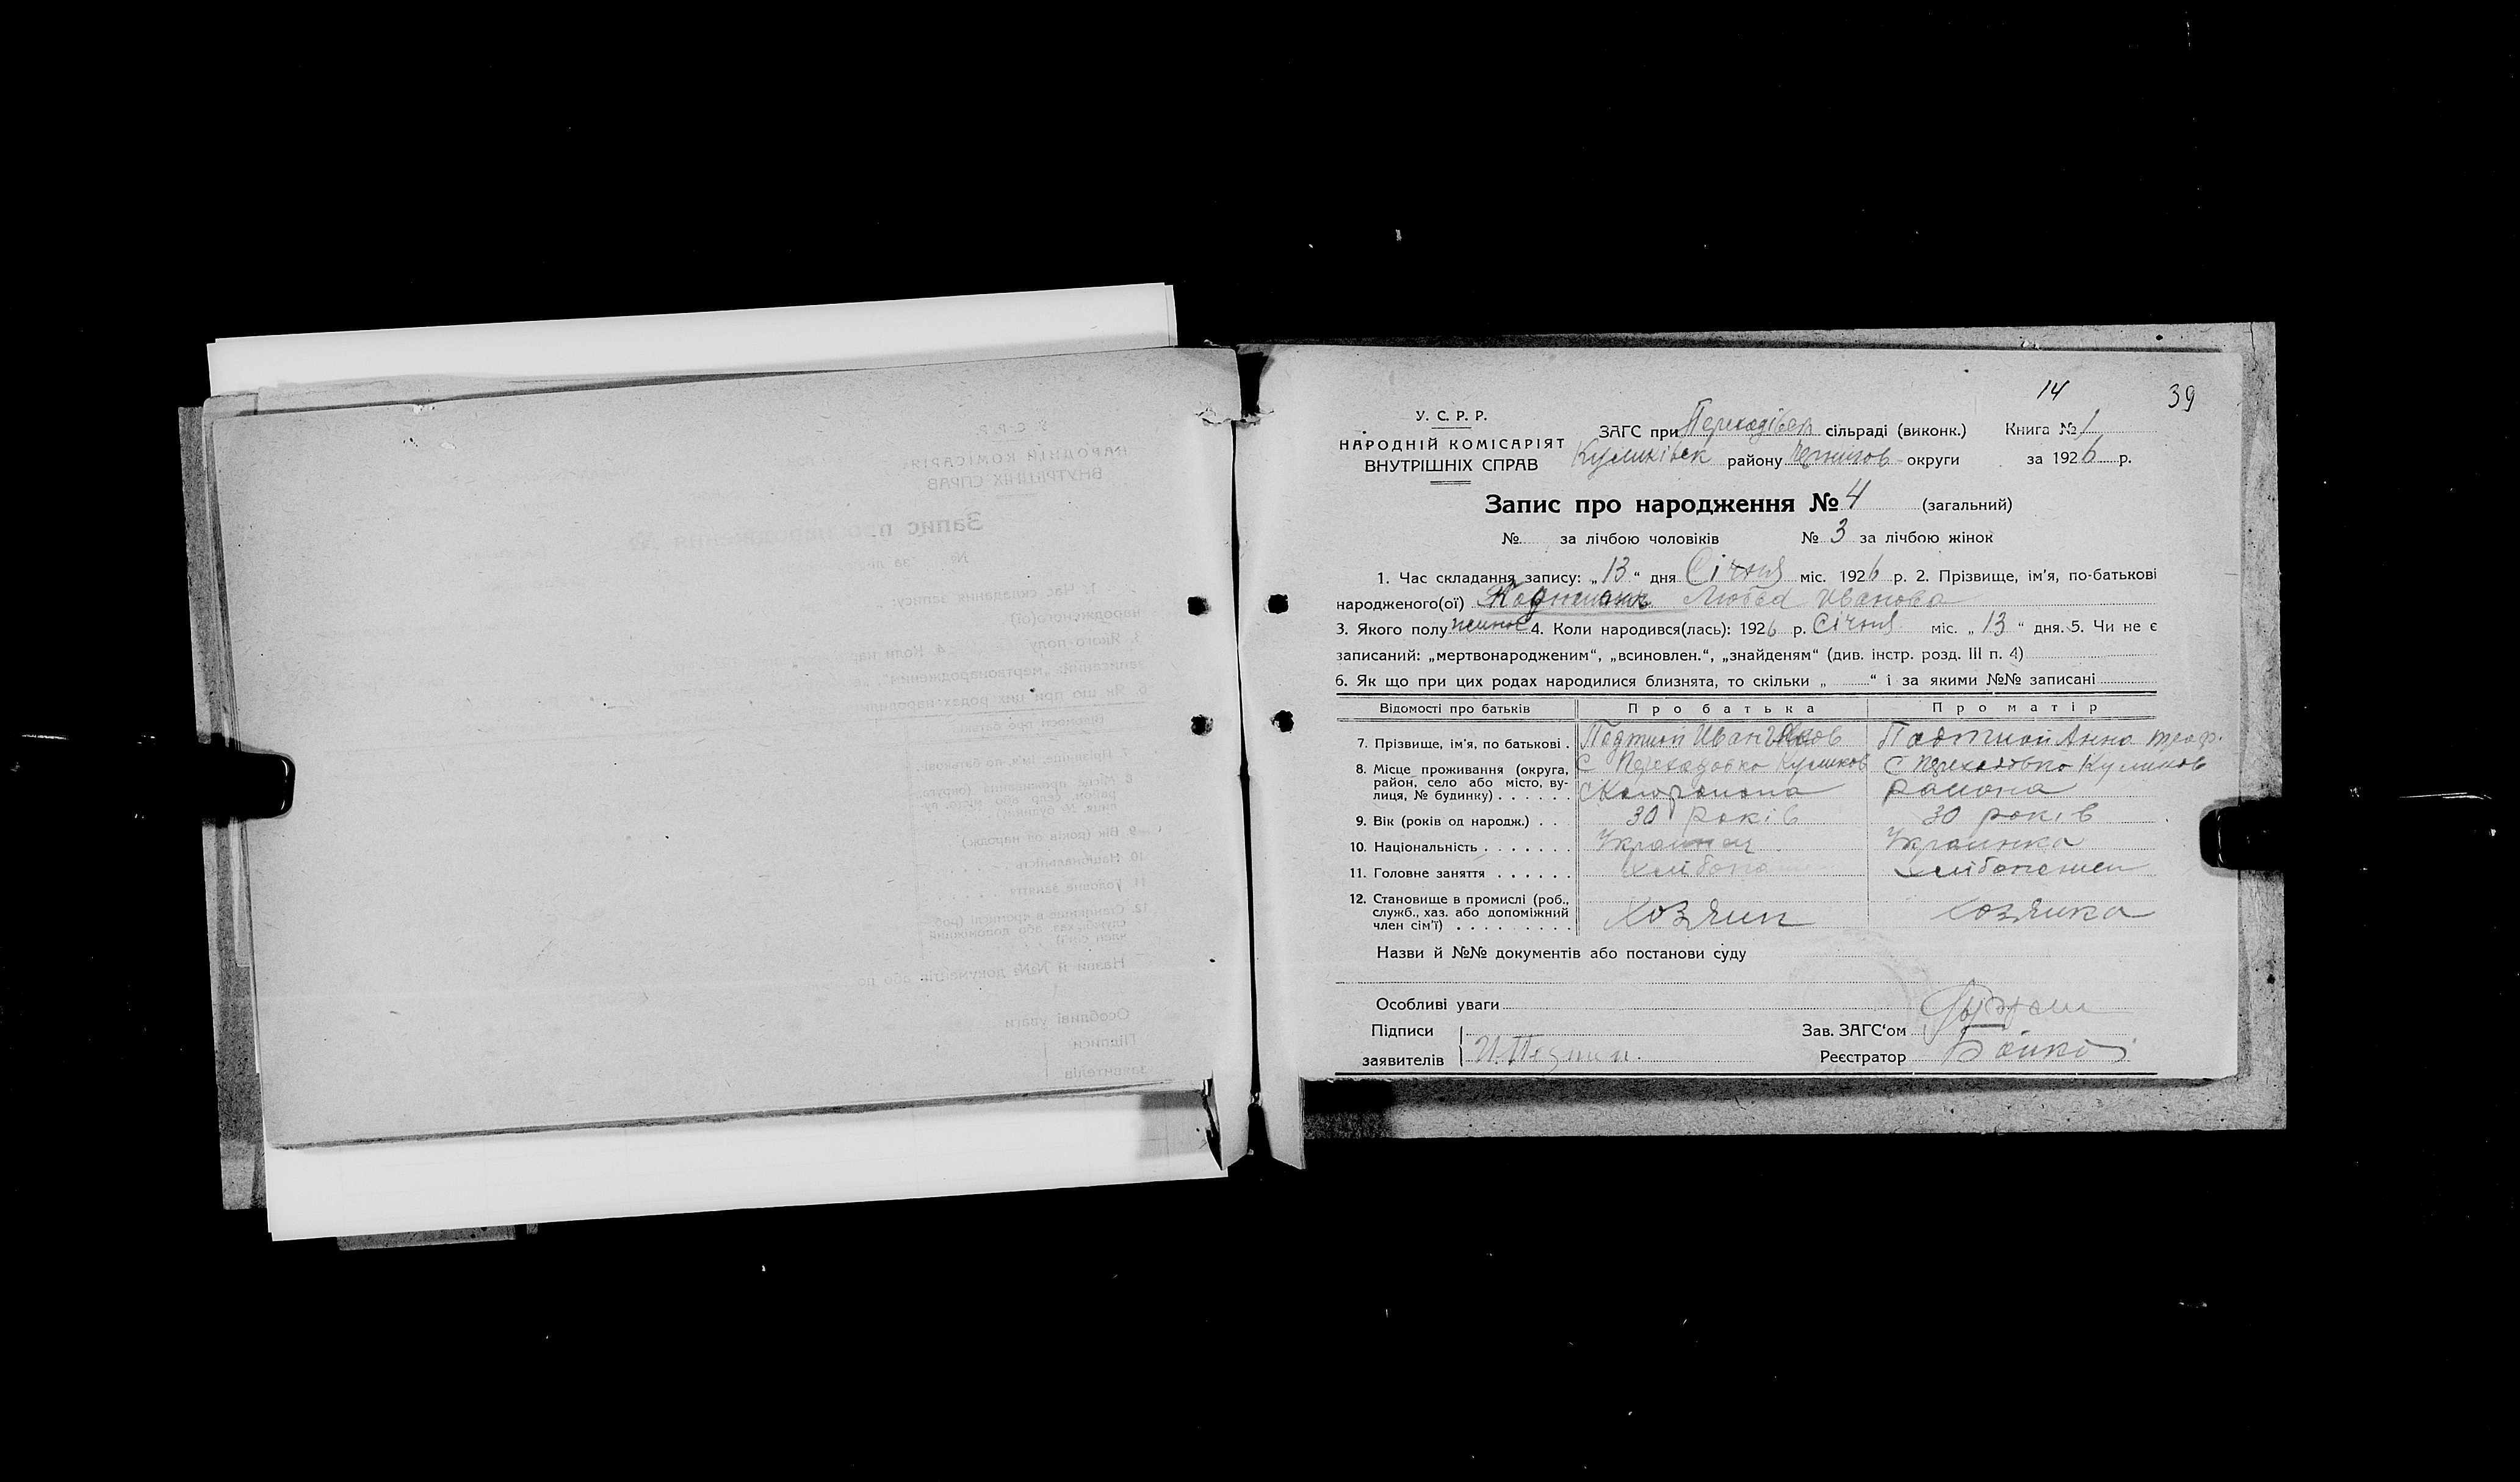 14
39
У. С. Р. Р.
НАРОДНІЙ КОМІСАРІЯТ
ВНУТРІШНІХ СПРАВ
ЗАГС при Переходівск сільраді (виконк.) Книга № 1
Куликівск району Чернигов округи за 1926 р.
Запис про народження № 4 (загальний)
№ за лічбою чоловіків № 3 за лічбою жінок
1. Час складання запису: „13“ дня Січня міс. 1926 р. 2. Прізвище, ім’я, по-батькові
народженого(ої) Любва Иванова
3. Якого полу жиноч 4. Коли народився(лась): 1926 р. Січня міс. „13“ дня. 5. Чи не є
записаний: „мертвонародженим“, „всиновлен.“, „знайденям“ (див. інстр. розд. III п. 4)
6. Як що при цих родах народилися близнята, то скільки „ “ і за якими №№ записані
Відомості про батьків Про батька Про матір
7. Прізвище, ім’я, по батькові . Иван Анна Троф.
8. Місце проживання (округа, район, село або місто, вулиця, № будинку) . . . . . . С Переходовка Куликов района С Переходовка Куликов района
9. Вік (років од народж.) . . 30 років 30 років
10. Національність . . . . . . . Украинец Украинка
11. Головне заняття . . . . . .
12. Становище в промислі (роб., служб., хаз. або допоміжний член сім’ї) . . . . . . . . . Хозяин Хозяика
Назви й №№ документів або постанови суду
Особливі уваги
Підписи
Зав. ЗАГС‘ом
заявителів
Реєстратор Бойко